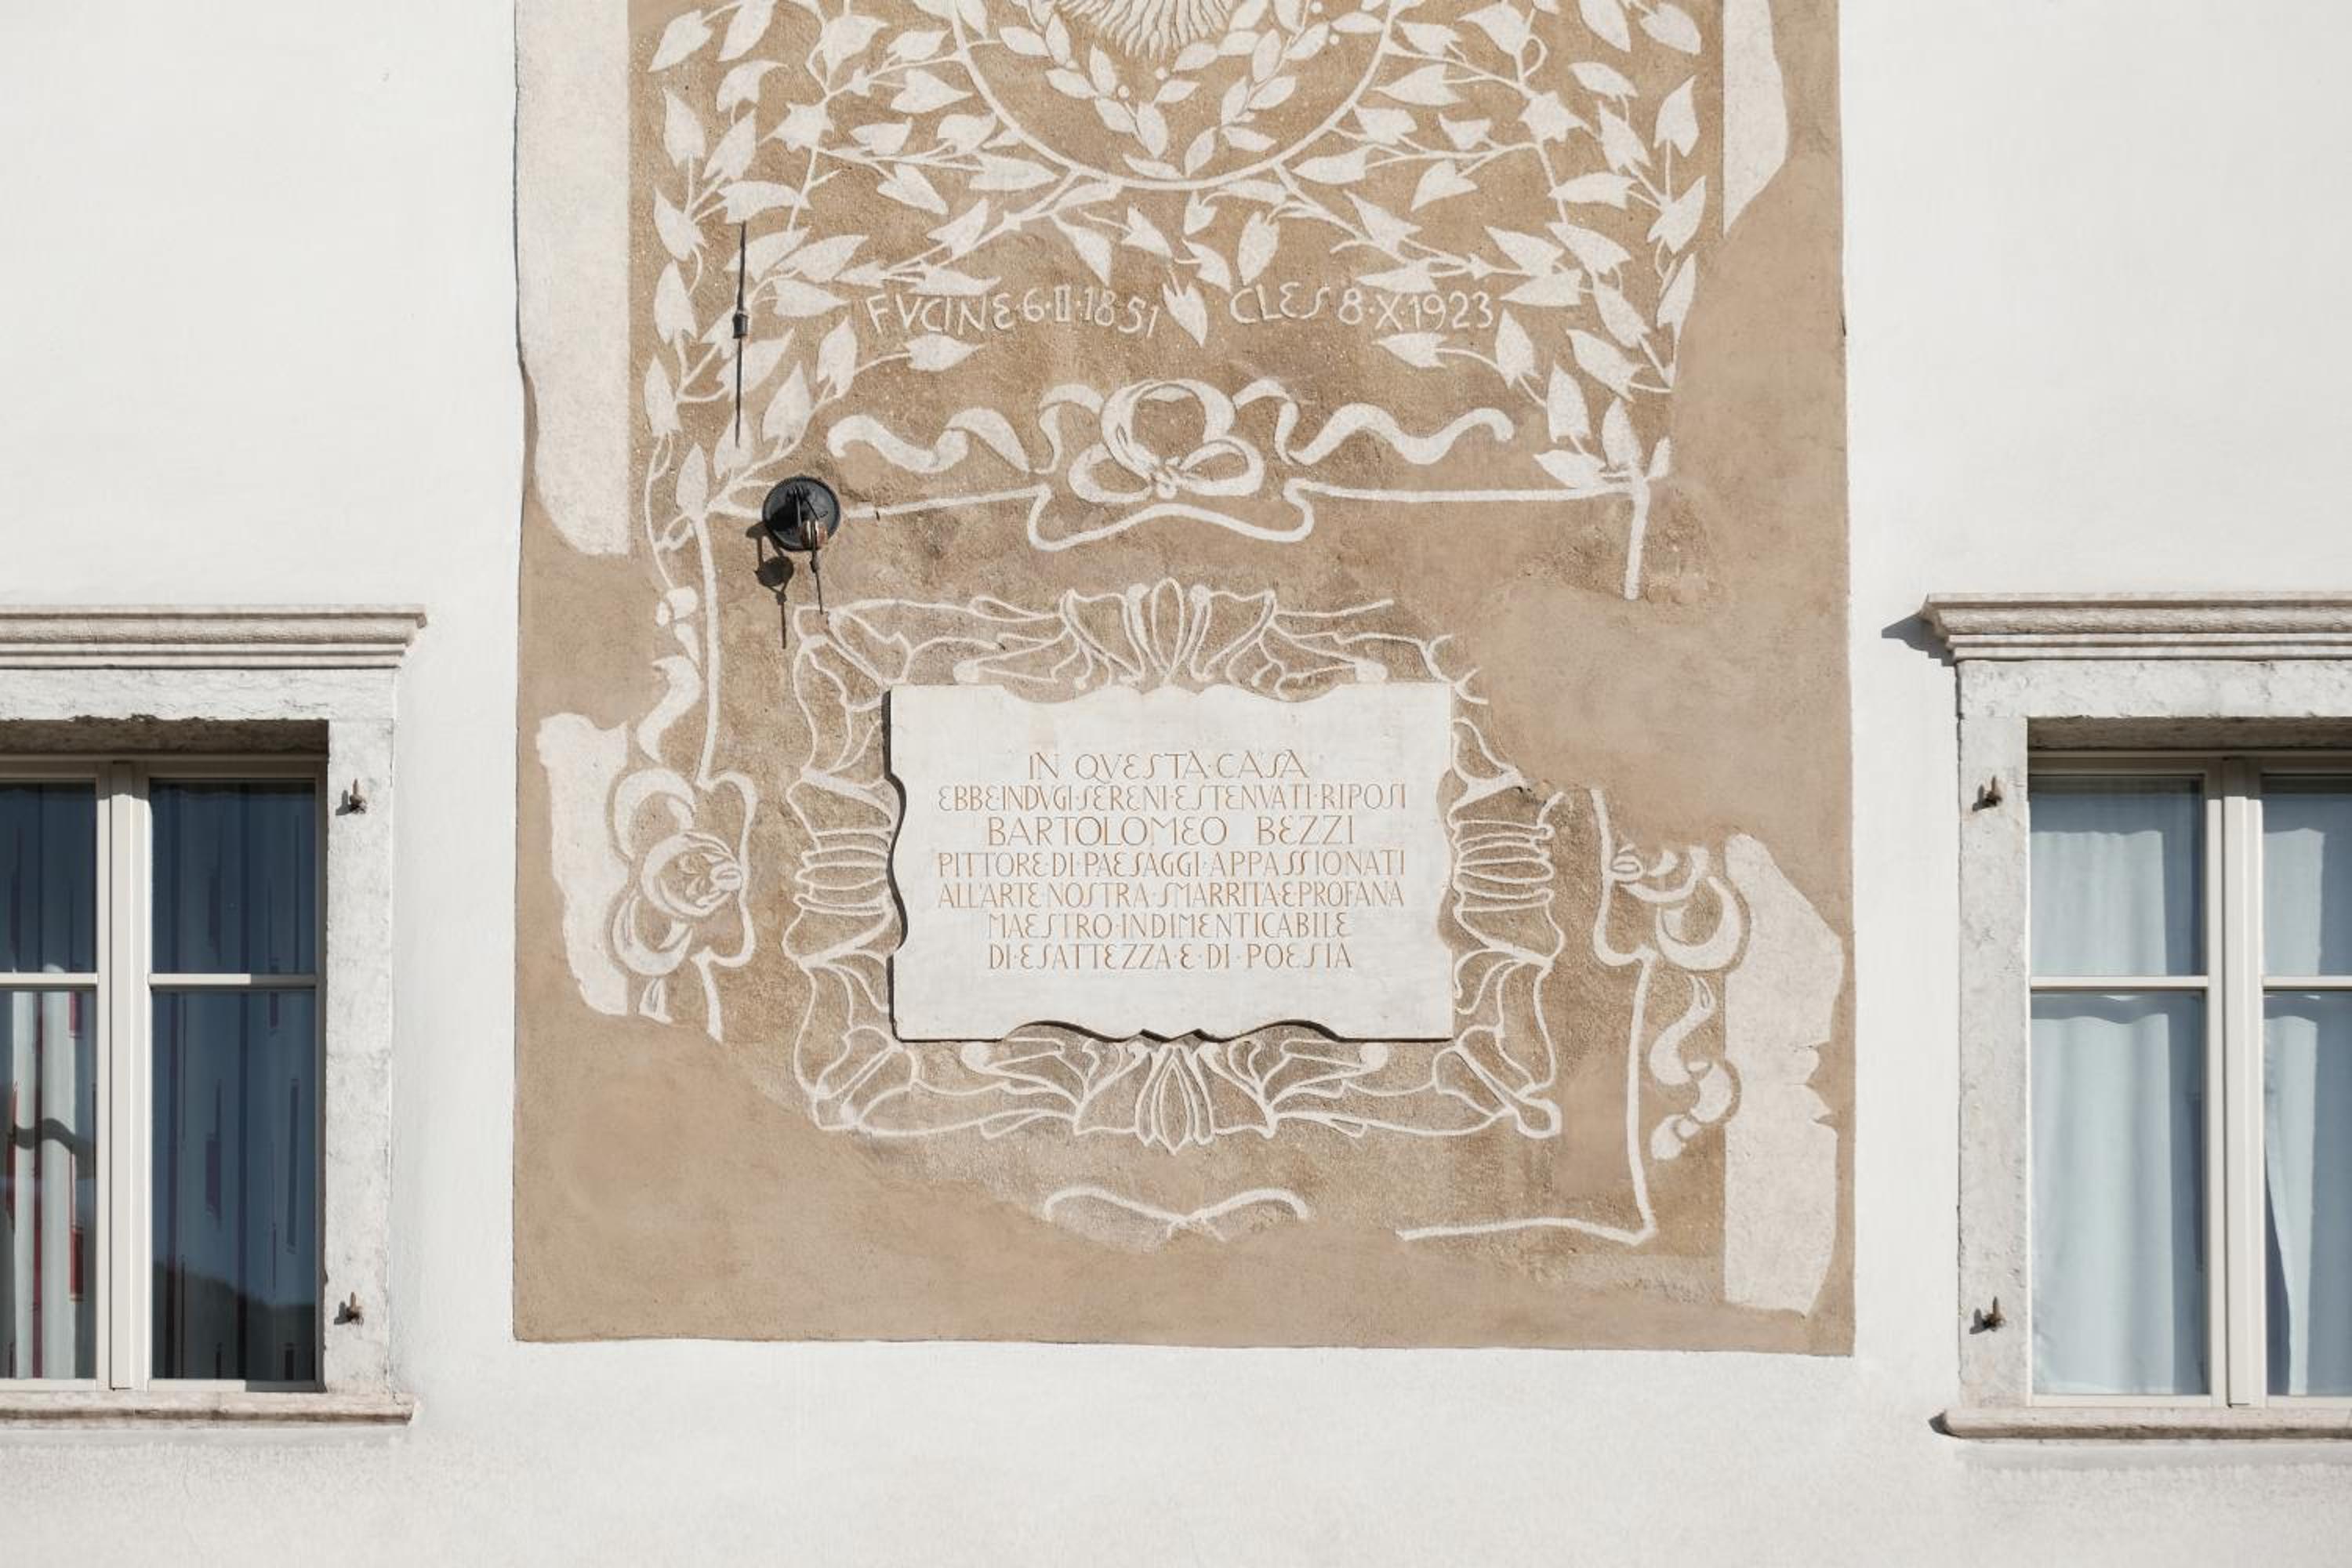 FVCINE·6·II·1851 CLES 8·X·1923
IN QVESTA·CASA
EBBE INDVGI·SERENI·ESTENVATI·RIPOSI
BARTOLOMEO BEZZI
PITTORE·DI·PAESAGGI·APPASSIONATI
ALL'ARTE NOSTRA·SMARRITA·E PROFANA
MAESTRO·INDIMENTICABILE
DI·ESATTEZZA·E·DI·POESIA